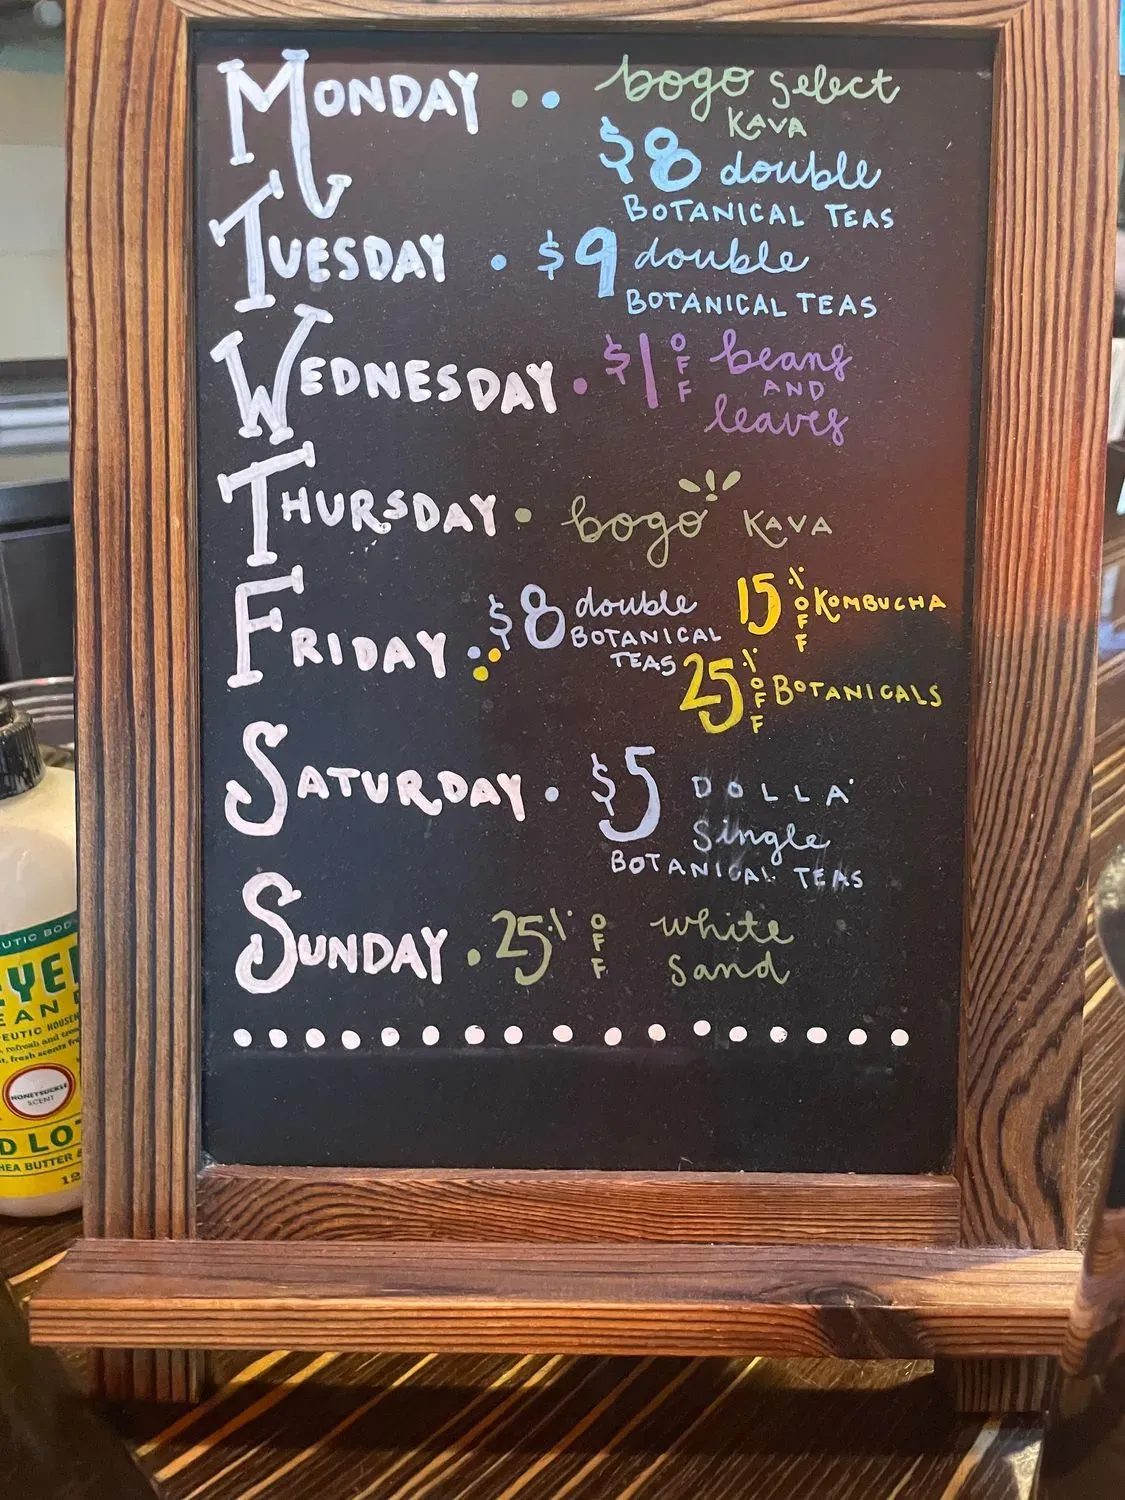 MONDAY •• bogo select
KAVA
$8 double
BOTANICAL TEAS
TUESDAY • $9 double
BOTANICAL TEAS
WEDNESDAY • $1 OFF beans
AND
leaves
THURSDAY • bogo KAVA
FRIDAY $8 double
BOTANICAL
TEAS
15% OFF KOMBUCHA
25% OFF BOTANICALS
SATURDAY • $5 DOLLA'
single
BOTANICAL TEAS
SUNDAY • 25% OFF white
sand
HONEYSUCKLE
SCENT